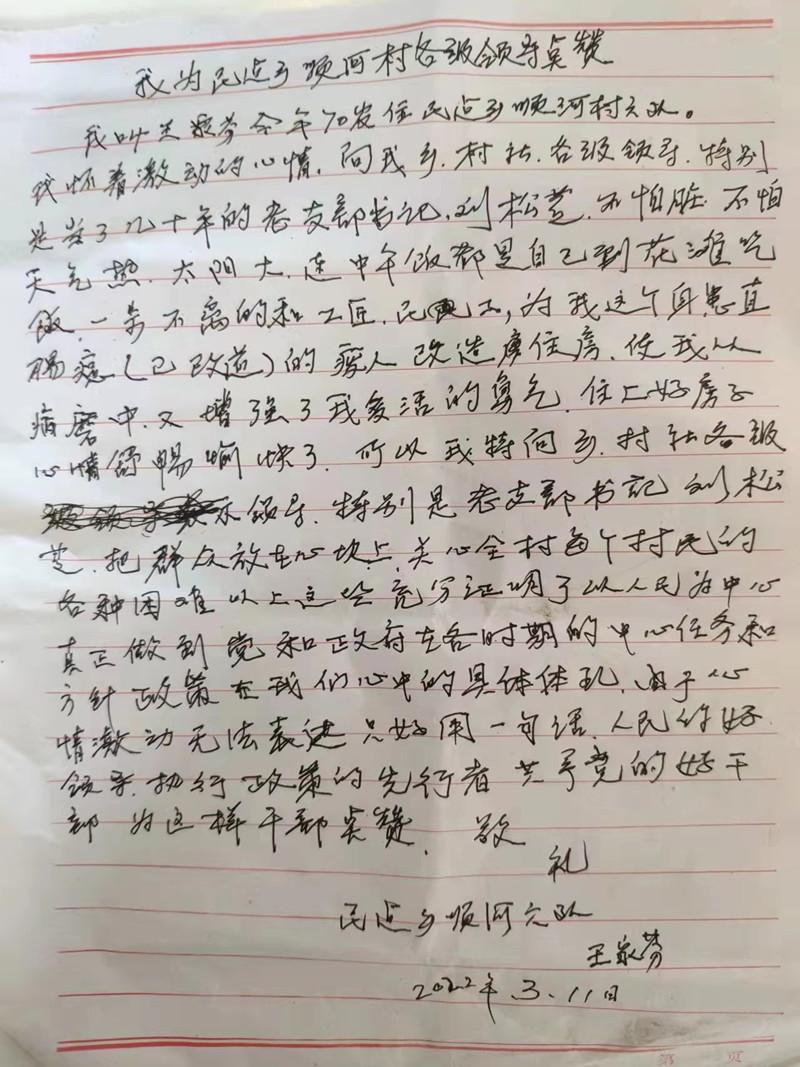 我为民运乡顺河村各级领导点赞
我叫王家芬今年70岁住民运乡顺河村六队。
我怀着激动的心情,向我乡、村社、各级领导、特别
是当了几十年的老支部书记,刘松芝、不怕脏 不怕
天气热、太阳大、连中午饭都是自己到花滩吃
饭、一步不离的和工匠、民工,为我这个身患直
肠癌(已改道)的病人改造住房、使我从
病磨中、又增强了我多活的勇气、住上好房子
心情舒畅愉快了、所以我特向乡、村社各级
领导、特别是老支部书记 刘松
芝、把群众放在心坎上、关心全村每个村民的
各种困难 以上这些充分证明了以人民为中心
真正做到党和政府在各时期的中心任务和
方针政策在我们心中的具体体现、由于心
情激动无法表达 只好用一句话、人民的好
领导、执行政策的先行者 共产党的好干
部 为这样干部点赞、 敬
礼
民运乡顺河六队
王家芬
2022年.3.11日
第 页